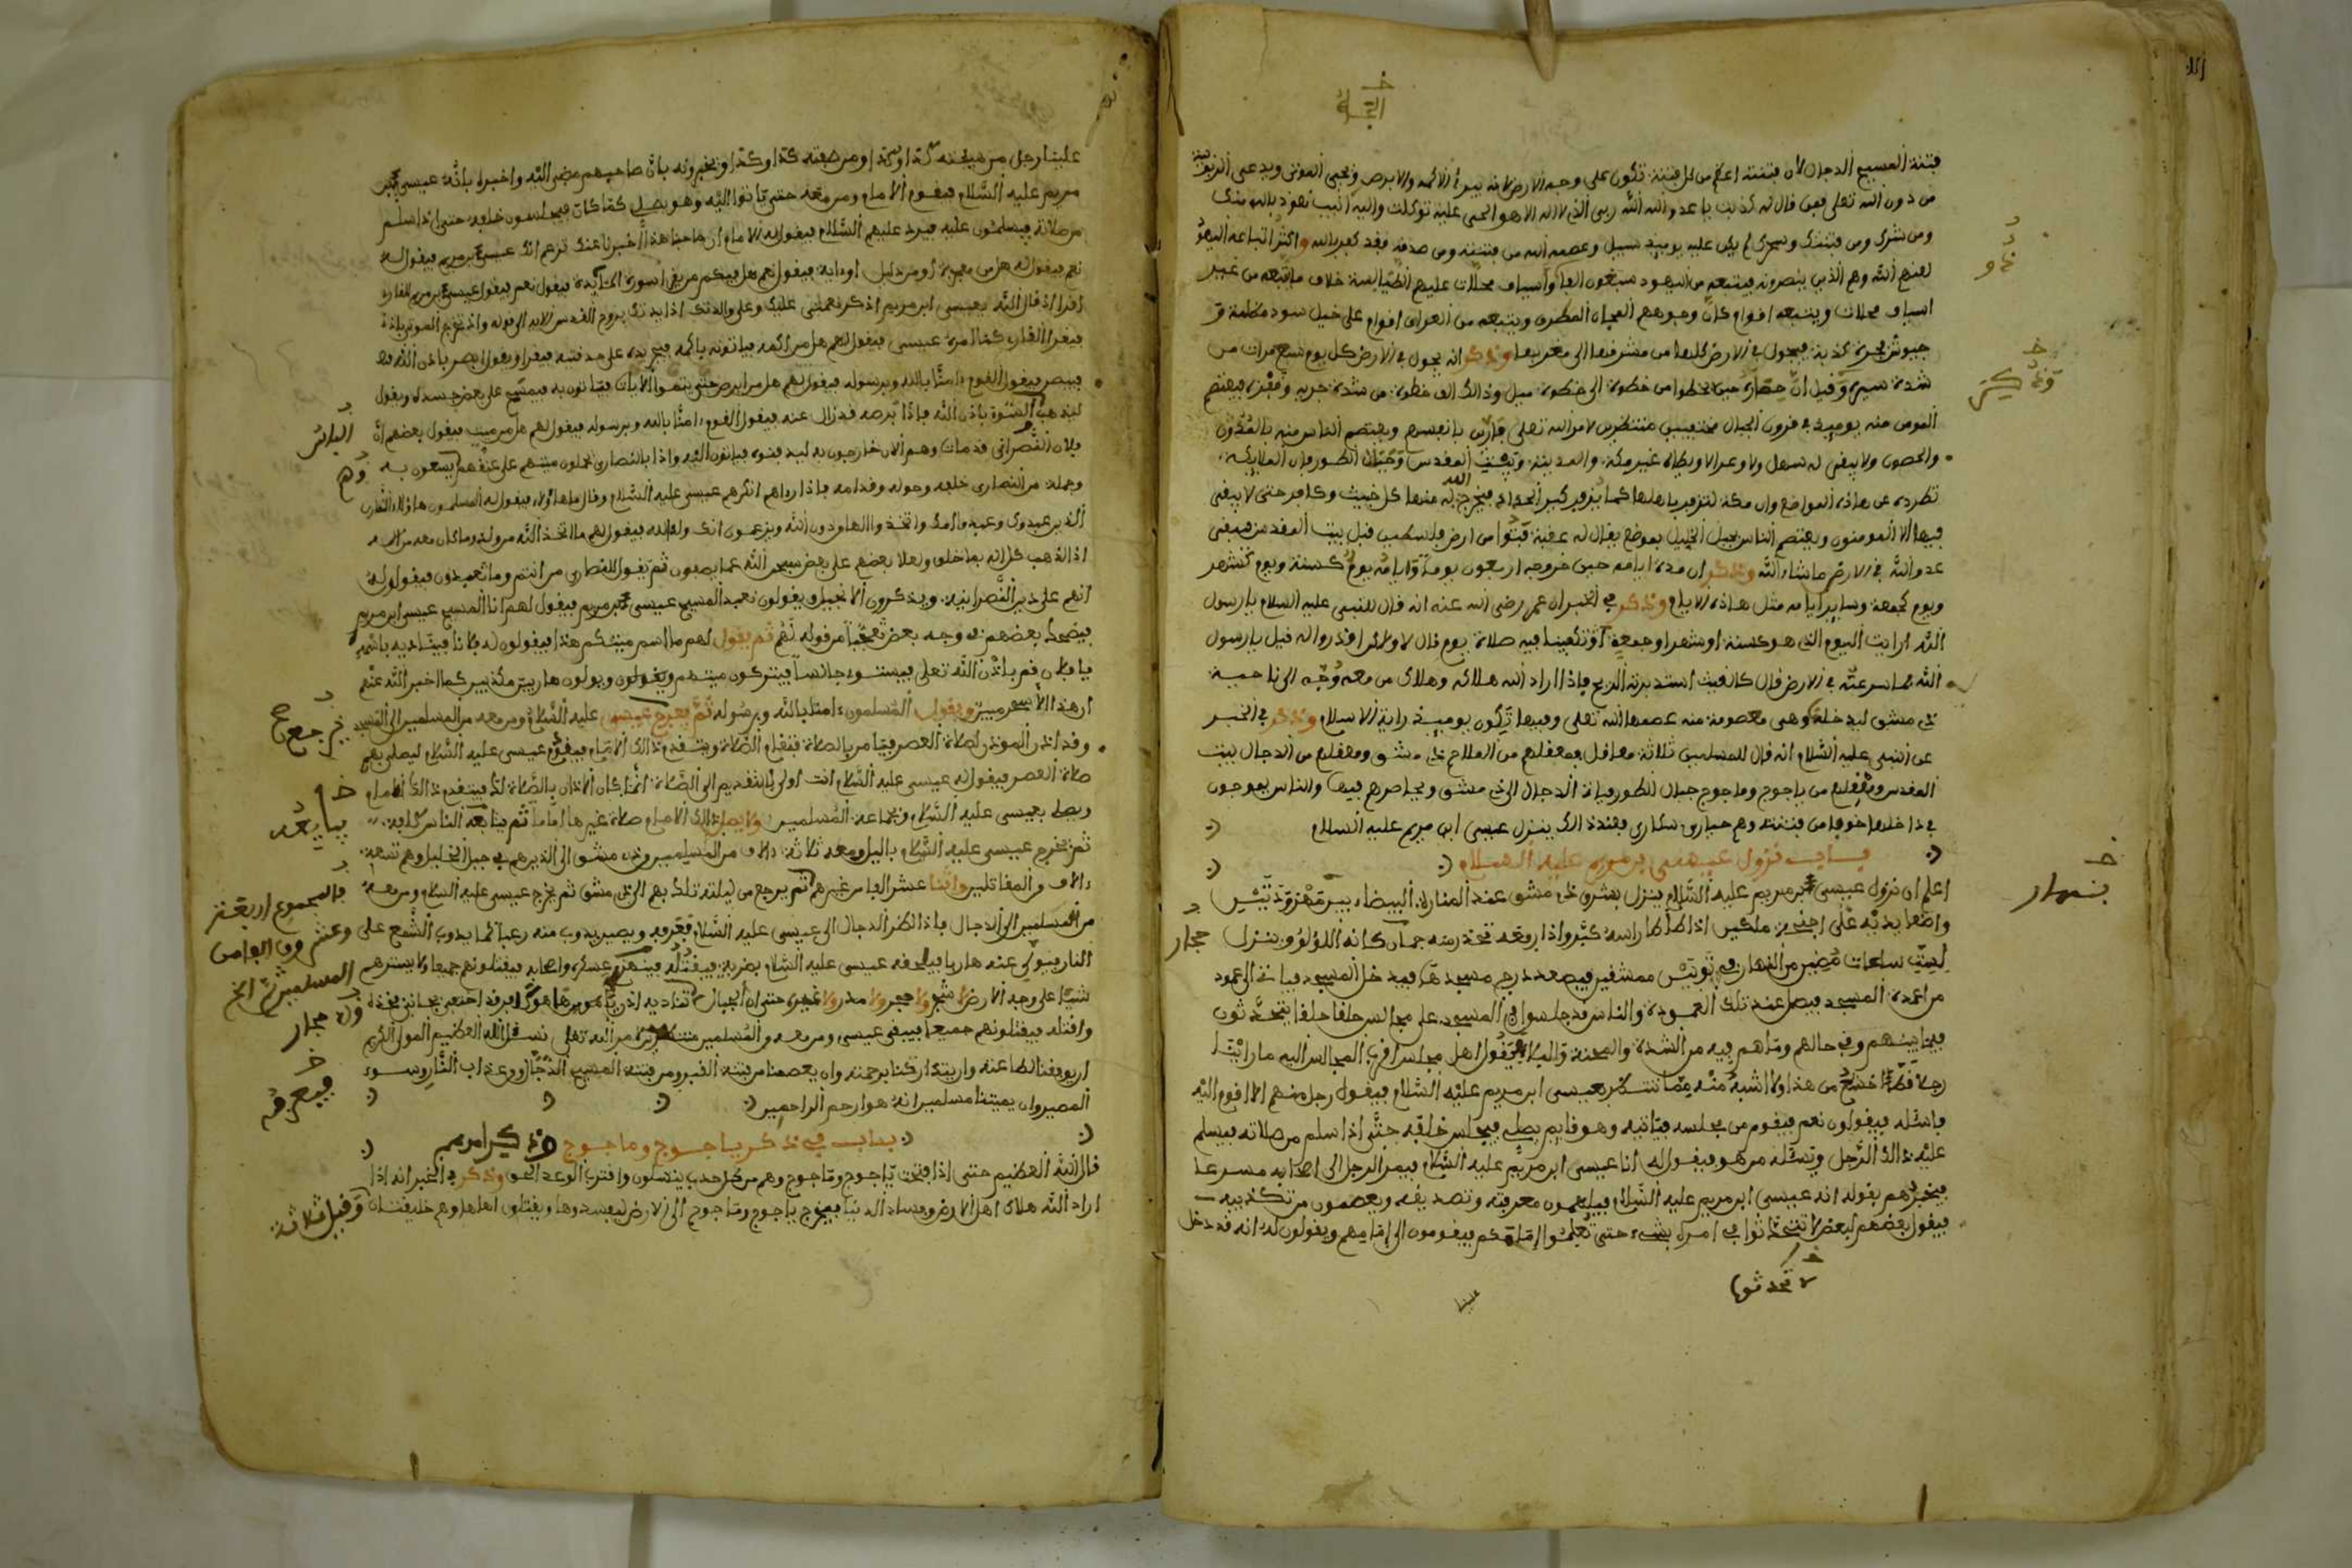 فتنة المسيح الدجال لأن فتنته اعظم من كل فتنة تكون على وجه الارض لانه يبرئ الاكمه والابرص ويحيى الموتى ويدعى الربوبية
من دون الله تعلى فمن قال له كذبت يا عدو الله الله ربى الذى لا اله الا هو الحى عليه توكلت واليه انيب نعوذ بالله منك
ومن شرك ومن فتنتك وسحرك لم يكن عليه يوميذ سبيل وعصمه الله من فتنته ومن صدقه فقد كفر بالله واكثر اتباعه اليهود
لعنهم الله وهم الذين ينصرونه فيتبعه من اليهود سبعون الفا واسياف محلات عليهم الطيالسة خلاف ما يتبعه من غير
اسياف محلات ويتبعه اقوام كان وجوههم المجان المطرقة ويتبعه من العراق اقوام على خيل سود مظلمة
فيجول فى الارض كلها من مشرقها الى مغربها وذكر انه يجول فى الارض كل يوم سبع مرات من
شدة سيره وقيل ان حماره حين يخطوا من خطوة الى خطوة ميل وذالك الف خطوة من شدة جريه وقفزه فيعتصم
المومن منه يوميذ فى قرون الجبال مختفيين منتظرين لامر الله تعلى فارين بانفسهم ويعتصم الناس منه بالمدون
والحصون ولا يبقى له سهل ولا وعر الا ويطاه غير مكة والمدينة وبيت المقدس وجبال الطور فان الملايكة
تطرده عن هاذه المواضع وان مكة لتزفر باهلها كما يزفر كير الحداد فيخرج الله منها كل خبيث وكافر حتى لا يبقى
فيها الا المومنون ويعتصم الناس بجبل الخليل بموضع يقال له عقبة من ارض فلسطين قبل بيت المقدس فيبقى
عدو الله فى الارض ما شاء الله وذكر ان مدة ايامه حين خروجه اربعون يوما وايامه يوم كسنة ويوم كشهر
ويوم كجمعة وساير ايامه مثل هاذه الايام وذكر فى الخبر ان عمر رضى الله عنه انه قال للنبى عليه السلام يا رسول
الله ارايت اليوم الذى هو كسنة او شهر او جمعة اوتكفينا فيه صلاة يوم قال لا ولاكن اقدروا له قيل يا رسول
الله فما سرعته فى الارض قال كالغيث استدبرته الريح فاذا اراد الله هلاكه وهلاك من معه وجه الى ناحية
دمشق ليدخلها وهى معصومة منه عصمها الله تعلى وفيها تكون يوميذ راية الاسلام وذكر فى الخبر
عن النبى عليه السلام انه قال للمسلمين ثلاثة معاقل فمعقلهم من الملاحم دمشق ومعقلهم من الدجال بيت
المقدس ومعقلهم من ياجوج وماجوج جبال الطور فياتى الدجال الى دمشق ويحاصرهم فيها والناس يموجون
فى داخلها خوفا من فتنته وهم حيارى سكارى فعند ذالك ينزل عيسى ابن مريم عليه السلام
باب نزول عيسى بن مريم عليه السلام
اعلم ان نزول عيسى بن مريم عليه السلام ينزل بشرقى دمشق عند المنارة البيضاء بين مهزودتين
واضعا يديه على اجنحة ملكين اذا طاطا راسه كثر واذا رفعه تحدر منه جمان كانه اللؤلؤ وينزل
لست ساعات مضين من النهار فى ثوبين ممشقين فيصعد درج مسجدها فيدخل المسجد فياتى الى عمود
من اعمدة المسجد فيصلى عند تلك العمودة والناس قد جلسوا فى المسجد على مجالس حلقا حلقا يتحدثون
فيما بينهم وفى حالهم وما هم فيه من الشدة والمحنة والبلاء فيقول اهل مجلس اقرب المجالس اليه ما راينا
رجلا قط اخشع من هذا ولا اشبه منه مما ننتظر بعيسى ابن مريم عليه السلام فيقول رجل منهم الا اقوم اليه
فاسئله فيقولون نعم فيقوم من مجلسه فياتيه وهو قايم يصلى فيجلس خلفه حتى اذا سلم من صلاته فيسلم
عليه ذالك الرجل ويسئله من هو فيقول له انا عيسى ابن مريم عليه السلام فيمر الرجل الى اصحابه مسرعا
فيخبرهم بقوله انه عيسى ابن مريم عليه السلام فيلهمون معرفته وتصديقه ويعصمون من تكذيبه
فيقول بعضهم لبعض لا تتحدثوا فى امركم بشىء حتى تعلموا امامكم فيقومون الى امامهم ويقولون له انه قد دخل
لا تحدثوا
علينا
بنهار
علينا رجل من هيئته كذا وكذا ومن صفته كذا وكذا ويخبرونه بان صاحبهم مضى اليه واخبره بانه عيسى بن
مريم عليه السلام فيقوم الامام ومن معه حتى ياتوا اليه وهو يصلى كما كان فيجلسون خلفه حتى اذا سلم
من صلاته فيسلمون عليه فيرد عليهم السلام فيقول له الامام ان صاحبنا هذا اخبرنا عنك تزعم انك عيسى بن مريم فيقول له
نعم فيقول له هل من معجزة او من دليل او اية فيقول لهم هل فيكم من يقرا سورة المايدة فيقول نعم فيقول عيسى بن مريم للقارئ
اقرا اذ قال الله يعيسى ابن مريم اذكر نعمتى عليك وعلى والدتك اذ ايدتك بروح القدس الاية الى قوله واذ تخرج الموتى باذنى
فيقرا القارئ كما امره عيسى فيقول لهم هل من اكمه فياتونه باكمه فيجر يده على حدقتيه فيقرا ويقول ابصر باذن الله
فيبصر فيقول القوم ءامنا بالله وبرسوله فيقول لهم هل من ابرص حتى يتموا الايات فياتون به فيمسح على بعض جسده ويقول
ليذهب السوء باذن الله فاذا برصه قد زال عنه فيقول القوم ءامنا بالله وبرسوله فيقول لهم هل من ميت فيقول بعضهم ان
فلان النصرانى قد مات وهم الان خارجون به ليدفنوه فياتون اليه واذا بالنصارى يحملون ميتهم على عنقهم يسعون به
وجملة من النصارى خلفه وحوله وقدامه فاذا رءاهم انكرهم عيسى عليه السلام وقال ما هاؤلاء فيقول له المسلمون هاؤلاء النصارى
الذين عبدوك وعبدوا امك واتخذوا الاها دون الله ويزعمون انك ولد الله فيقول لهم ما اتخذ الله من ولد وما كان معه من اله
اذا لذهب كل اله بما خلق ولعلا بعضهم على بعض سبحن الله عما يصفون ثم يقول للنصارى من انتم وما تعبدون فيقولون له
انهم على دين النصرانية ويذكرون الانجيل ويقولون نعبد المسيح عيسى بن مريم فيقول لهم انا المسيح عيسى ابن مريم
فيضحك بعضهم فى وجه بعض تعجبا من قوله لهم ثم يقول لهم ما اسم ميتكم هذا فيقولون له فلانا فيناديه باسمه
يا فلان قم باذن الله تعلى فيستوى جالسا فيتركون ميتهم ويقولون ويولون هاربين مكذبين كما اخبر الله عنهم
ان هذا الا سحر مبين ويقول المسلمون ءامنا بالله وبرسوله ثم يعرج عيسى عليه السلام ومن معه من المسلمين الى المسجد
وقد اذن الموذن لصلاة العصر فيامر بالصلاة فتقام الصلاة ويتقدم ذالك الامام فيقوم عيسى عليه السلام ليصلى بهم
صلاة العصر فيقول له عيسى عليه السلام انت اولى بالتقديم الى الصلاة انما كان الاذان بالصلاة لك فيتقدم ذالك الامام
ويصلى بعيسى عليه السلام وجماعة المسلمين ولا يصلى ذالك الامام صلاة غيرها اماما ثم يتابعه الناس كلهم
ثم يخرج عيسى عليه السلام باليل ومعه ثلاثة ءالاف من المسلمين من دمشق الى الذين هم فى جبل الخليل وهم تسعة
ءالاف والمقاتلين واثنا عشر الفا من غيرهم ثم يرجع من ليلته تلك بهم الى دمشق ثم يخرج عيسى عليه السلام ومن معه
من المسلمين الى الدجال فاذا نظر الدجال الى عيسى عليه السلام فيعرفه ويصير يذوب منه رعبا كما يذوب الشمع على
النار فيولى عنه هاربا فيلحقه عيسى عليه السلام بضربة فيقتله فينهزم عسكره واصحابه فيقتلونهم جميعا ولا يسترهم
شيئا على وجه الارض لا شجر ولا حجر ولا مدر ولا غيره حتى ان الجبال تناديه
واقتله فيقتلونهم جميعا فيبقى عيسى ومن معه من المسلمين منتظرين لامر الله تعلى نسئل الله العظيم المولى الكريم
ان يوفقنا لطاعته وان يتداركنا برحمته وان يعصمنا من فتنة القبر ومن فتنة المسيح الدجال ومن عذاب النار وسوء
المصير وان يميتنا مسلمين انه هو ارحم الراحمين
باب فى ذكر ياجوج وماجوج وذكر امرهم
قال الله العظيم حتى اذا فتحت ياجوج وماجوج وهم من كل حدب ينسلون واقترب الوعد الحق وذكر فى الخبر انه اذا
اراد الله هلاك اهل الارض وفساد الدنيا فيخرج ياجوج وماجوج الى الارض ليفسدوها ويقتلون اهلها وهم خليقتان وقيل ثلاثة
فيعرفه